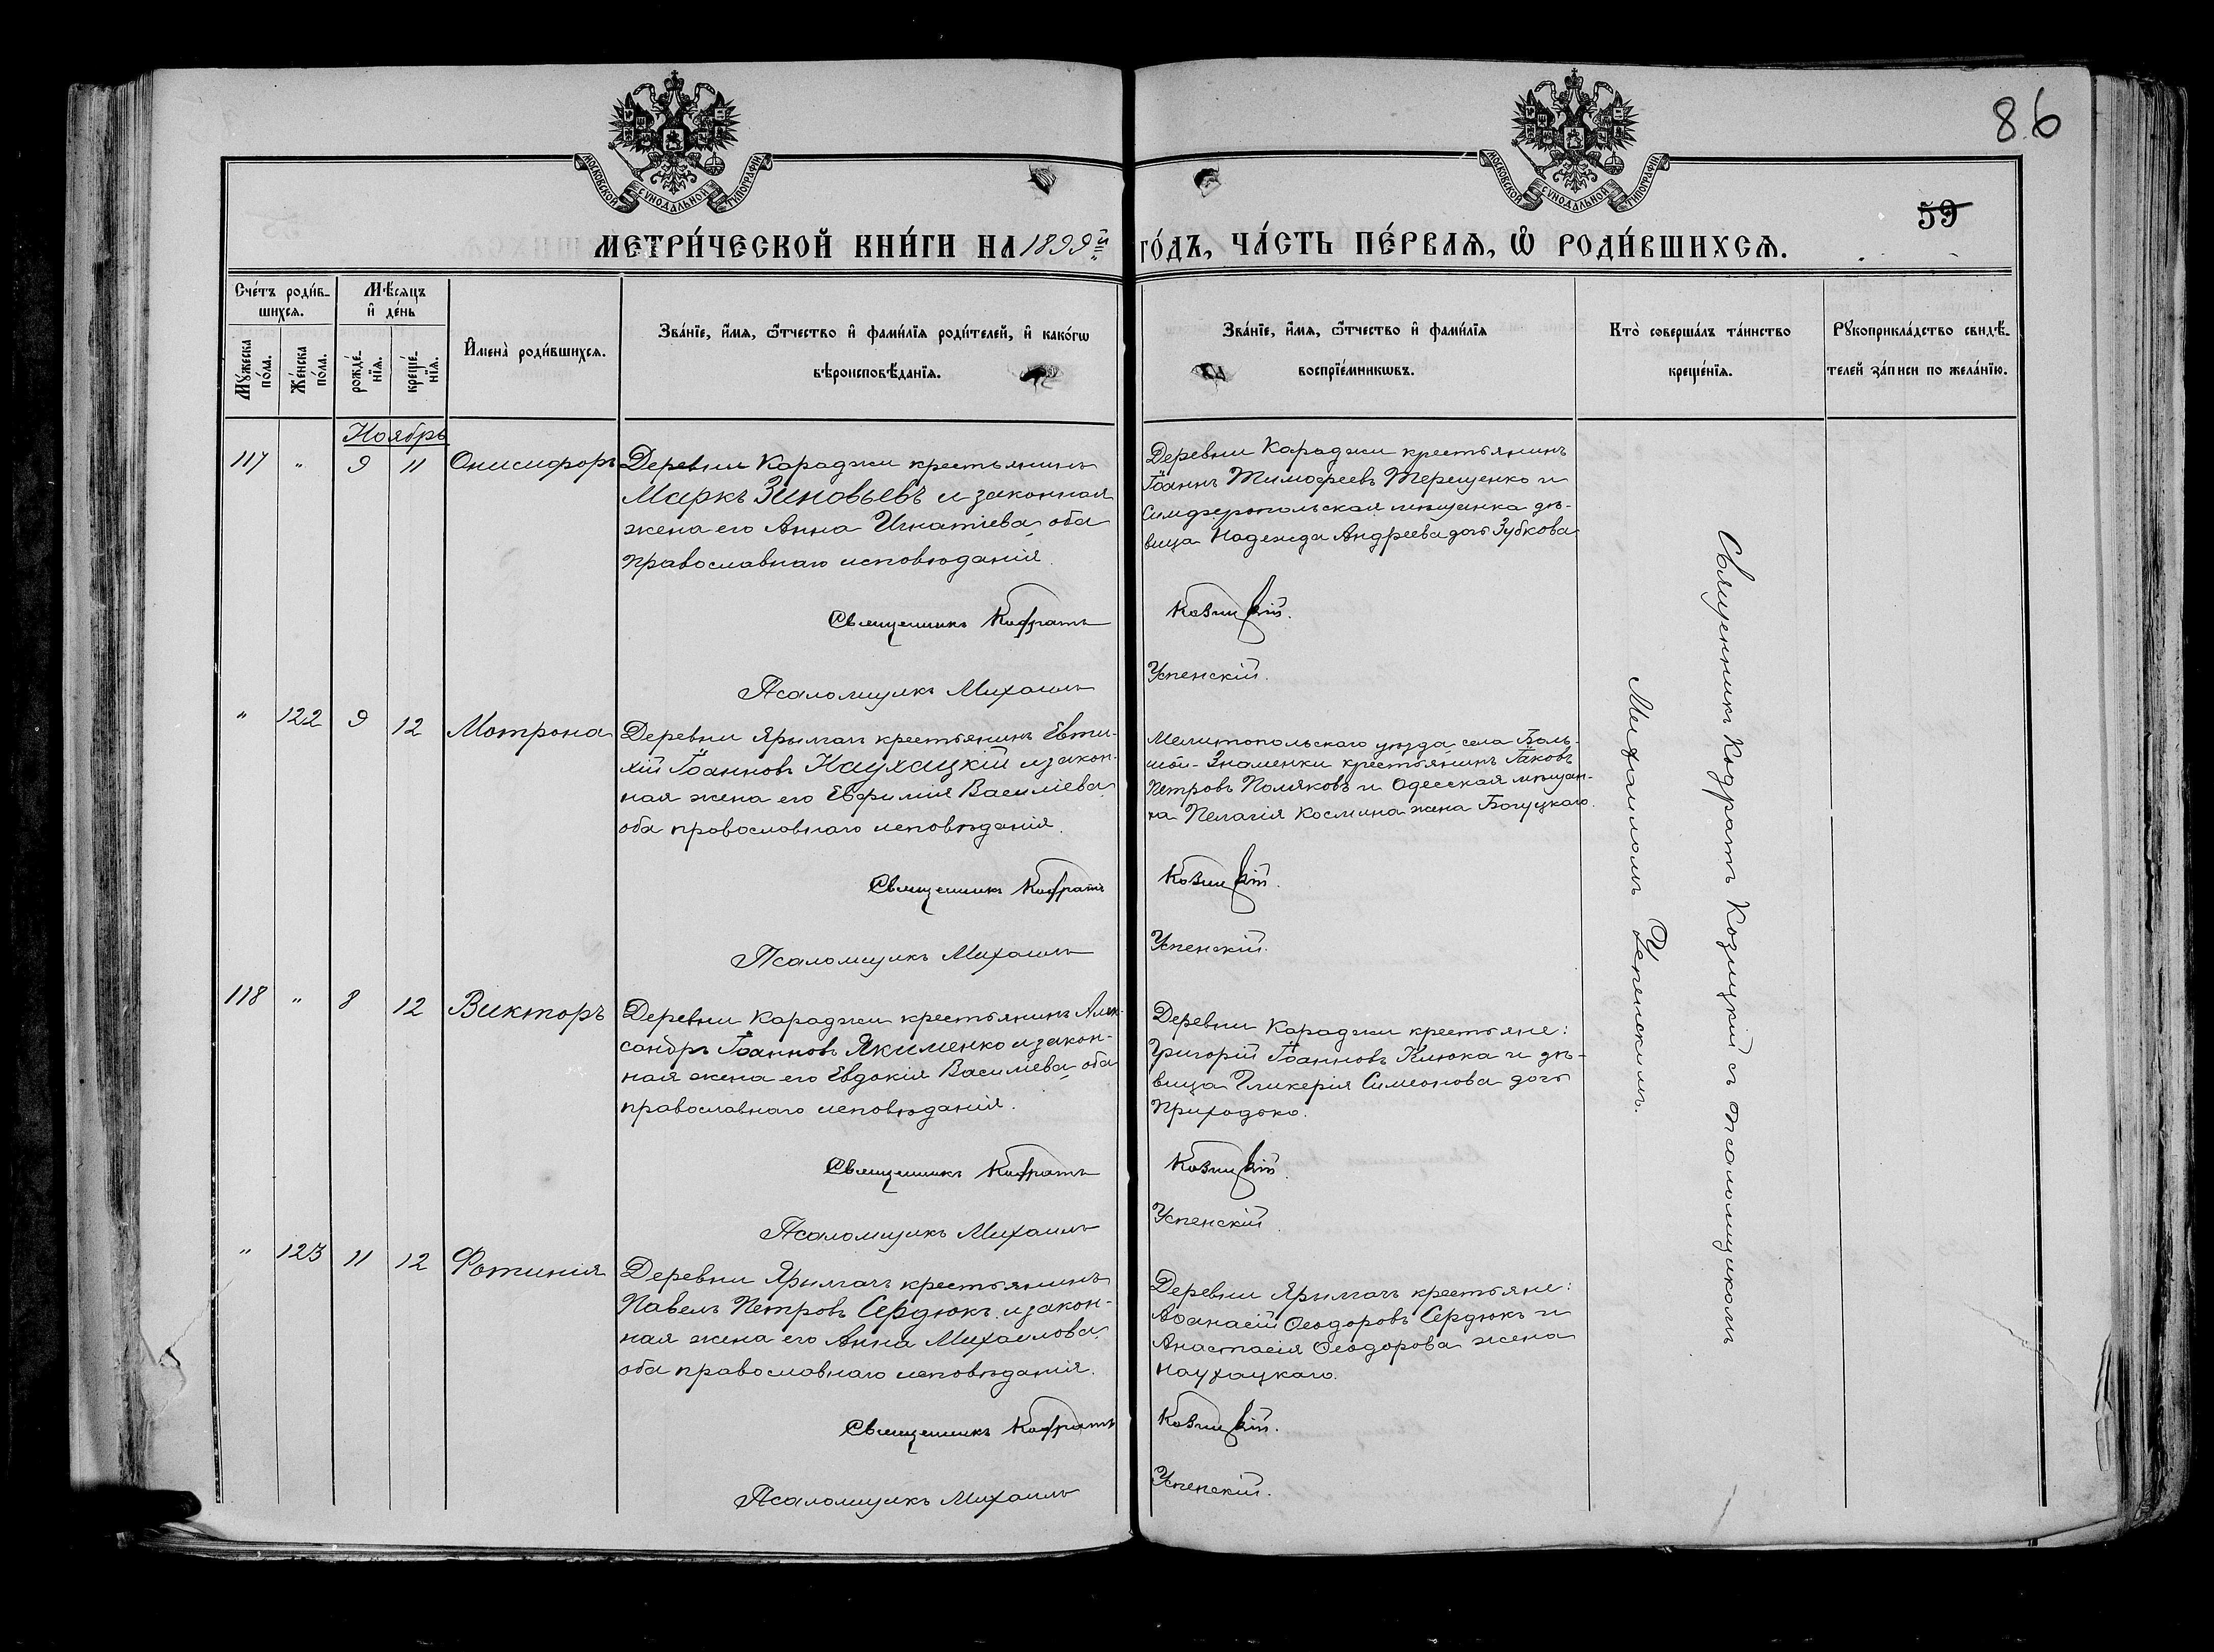 86
МОСКОВСКОЙ СѴНОДАЛЬНОЙ ТИПОГРАФІИ
МОСКОВСКОЙ СѴНОДАЛЬНОЙ ТИПОГРАФІИ
59
МЕТРИ́ЧЕСКОЙ КНИ́ГИ НА 1899й ГО́ДЪ, ЧА́СТЬ ПЕ́РВАѦ, Ѽ РОДИ́ВШИХСѦ.
Сче́тъ роди́в-
шихсѧ.
Мꙋ́жеска
по́ла.
Же́нска
по́ла.
Мѣ́сѧцъ
и҆ де́нь
рожде́-
нїѧ.
креще́-
нїѧ.
И҆мена̀ роди́вшихсѧ.
Зва́нїе, и҆́мѧ, ѻ҆́тчество и҆ фами́лїѧ роди́телей, и҆ како́гѡ
вѣроисповѣ́данїѧ.
Зва́нїе, и҆́мѧ, ѻ҆́тчество и҆ фами́лїѧ
воспрїе́мникѡвъ.
Кто̀ соверша́лъ та́инство
креще́нїѧ.
Рꙋкоприкла́дство свидѣ́-
телей за́писи по жела́нїю.
Ноябрь
117 " 9 11 Онисифоръ
Деревни Караджи крестьянинъ
Маркъ Зиновьевъ и законная
жена его Анна Игнатіева, оба
православнаго исповѣданія.
Священникъ Кодратъ
Псаломщикъ Михаилъ
Деревни Караджи крестьянинъ
Іоаннъ Тимофеевъ Терещенко и
Симферопольская мѣщанка дѣ-
вица Надежда Андреева дочь Зубкова
Козицкій.
Успенскій.
" 122 9 12 Мотрона
Деревни Ярылгачъ крестьянинъ Евти-
хій Іоанновъ Наухацкій и закон-
ная жена его Евфимія Василіева,
оба православнаго исповѣданія.
Священникъ Кодратъ
Псаломщикъ Михаилъ
Мелитопольскаго уѣзда, села Боль-
шой-Знаменки крестьянинъ Іаковъ
Петровъ Поляковъ и Одесская мѣщан-
ка Пелагія Космина жена Богуцкаго.
Козицкій.
Успенскій.
118 " 8 12 Викторъ
Деревни Караджи крестьянинъ Алек-
сандръ Іоанновъ Якименко и закон-
ная жена его Евдокія Василіева, оба
православнаго исповѣданія.
Священникъ Кодратъ
Псаломщикъ Михаилъ
Деревни Караджи крестьяне:
Григорій Іоанновъ Клюка и дѣ-
вица Гликерія Симеонова дочь
Приходько.
Козицкій.
Успенскій.
" 123 11 12 Фотинія
Деревни Ярылгачъ крестьянинъ
Павелъ Петровъ Сердюкъ и закон-
ная жена его Анна Михаилова,
оба православнаго исповѣданія.
Священникъ Кодратъ
Псаломщикъ Михаилъ
Деревни Ярылгачъ крестьяне:
Аѳанасій Ѳеодоровъ Сердюкъ и
Анастасія Ѳеодорова жена
Наухацкаго.
Козицкій.
Успенскій.
Священникъ Кодратъ Козицкій съ псаломщикомъ
Михаиломъ Успенскимъ.